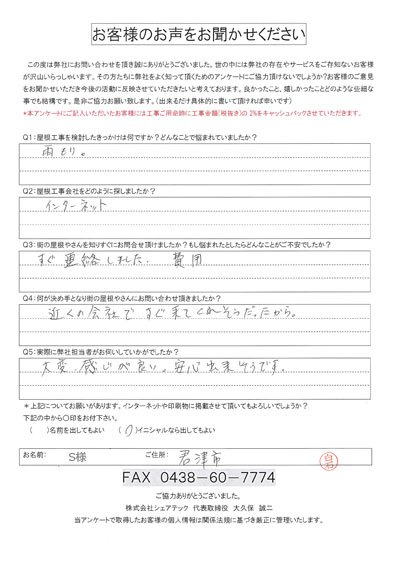 お客様のお声をお聞かせください
この度は弊社にお問い合わせを頂き誠にありがとうございます。世の中には弊社の存在やサービスをご存知ないお客様
が沢山いらっしゃいます。その方たちに弊社をよく知って頂くためのアンケートにご協力頂けないでしょうか?お客様のご意見
をお聞かせいただき今後の活動に反映させていただきたいと考えております。良かったこと、嬉しかったことどのような些細な
事でも結構です。是非ご協力お願い致します。(出来るだけ具体的に書いて頂ければ幸いです)
*本アンケートにご記入いただいたお客様には工事ご用命時に工事金額(税抜き)の2%をキャッシュバックさせていただきます。
Q1:屋根工事を検討したきっかけは何ですか?どんなことで悩まれていましたか?
雨もり。
Q2:屋根工事会社をどのように探しましたか?
インターネット
Q3:街の屋根やさんを知りすぐにお問合せ頂けましたか?もし悩まれたとしたらどんなことがご不安でしたか?
すぐ連絡しました. 費用
Q4:何が決め手となり街の屋根やさんにお問い合わせ頂きましたか?
近くの会社ですぐ来てくれそうだ。たから。
Q5:実際に弊社担当者がお伺いしていかがでしたか?
大変、感じが良い。安心出来そうです。
*上記についてお願いがあります。インターネットや印刷物に掲載させて頂いてもよろしいでしょうか?
下記の中から〇印をお付下さい。
( )名前を出してもよい (〇)イニシャルなら出してもよい
お名前: S様 ご住所: 君津市
FAX 0438-60-7774
ご協力ありがとうございました。
株式会社シェアテック 代表取締役 大久保 誠二
当アンケートで取得したお客様の個人情報は関係法規に基づき厳正に管理いたします。